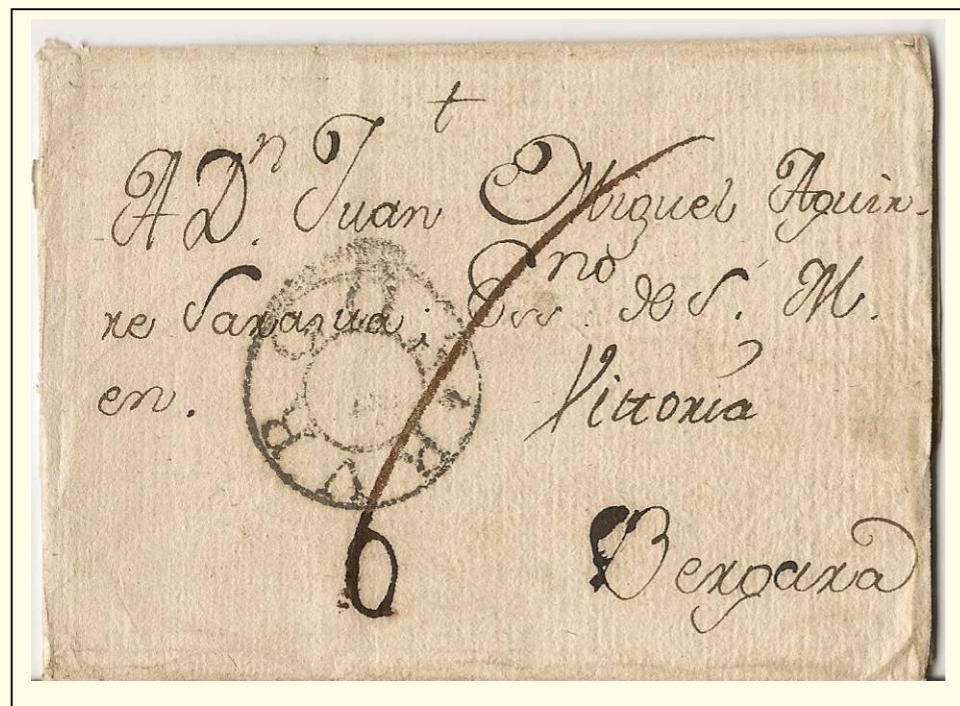 A D.n Juan Miguel Aguir-
re Sarasua; Ess.no de S. M.
en. Vittoria
6
Bergara